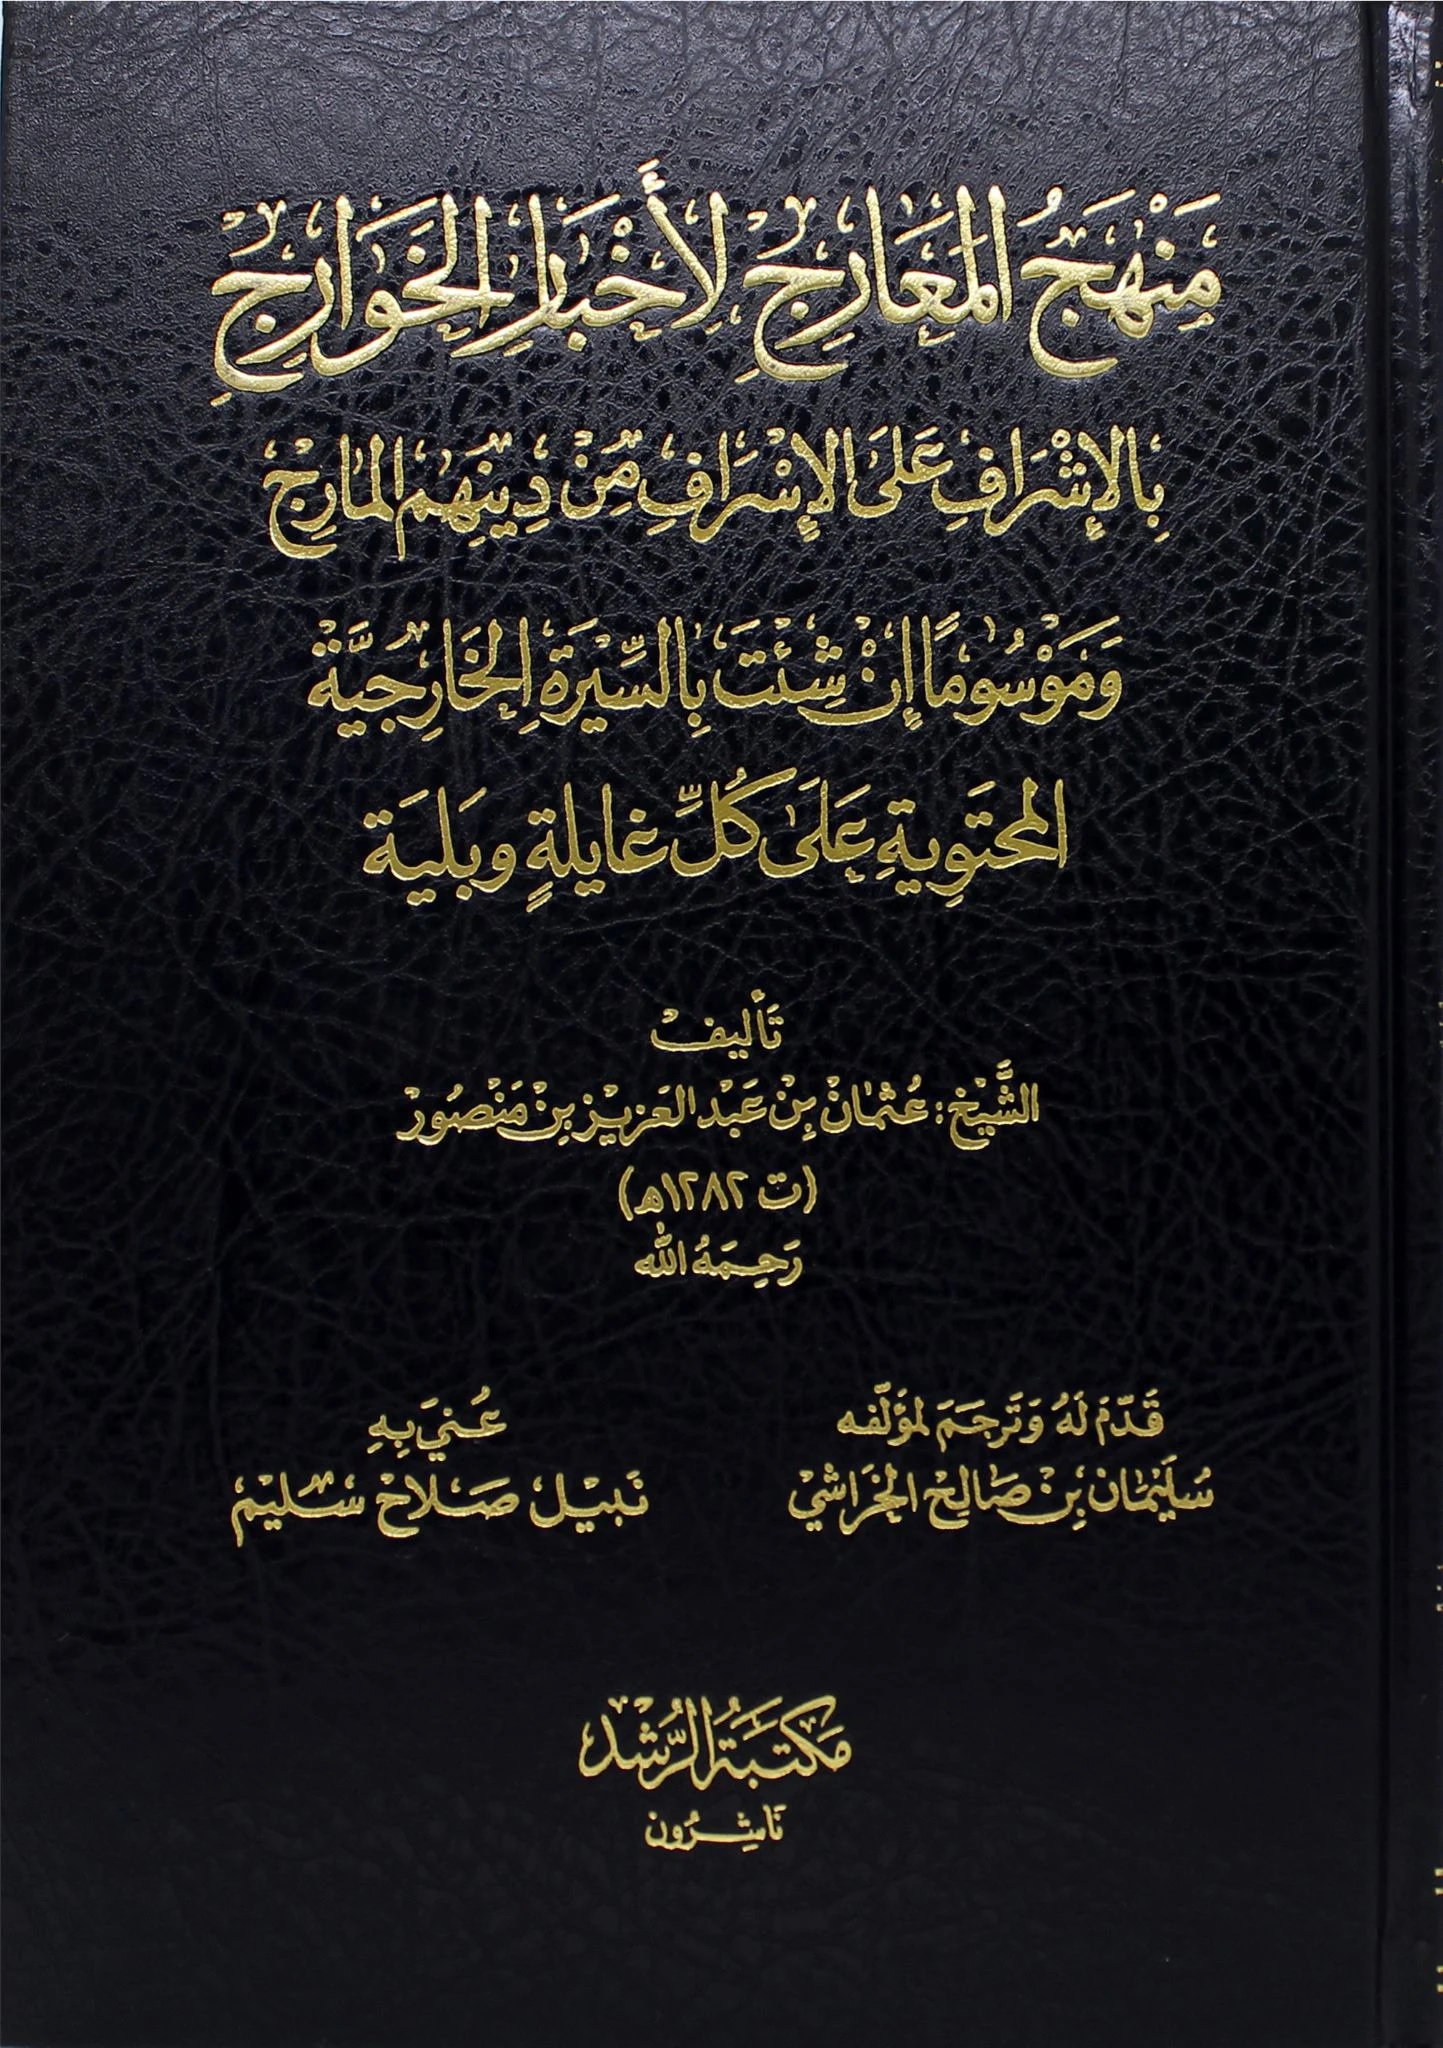 مَنْهَجُ المَعَارِجِ لِأَخْبَارِ الخَوَارِجِ
بِالإِشْرَافِ عَلَى الإِسْرَافِ مِنْ دِينِهِم المَارِج
وَمَوْسُومًا إِنْ شِئْتَ بِالسِّيْرَةِ الخَارِجيَّة
المحتوِيةِ عَلَى كُلِّ غايلةٍ وبَليَة
تَأليف
الشَّيْخ: عُثمَان بِن عَبْد العَزيز بن مَنْصُور
(ت ١٢٨٢هـ)
رَحِمَهُ الله
قَدَّمَ لَهُ وَتَرجَمَ لمؤلّفه
سُلَيمَان بن صَالِح الخَراشي
عُنيَ بِهِ
نَبيل صَلاح سَليم
مَكتَبَةُ الرُّشد
نَاشِرُون